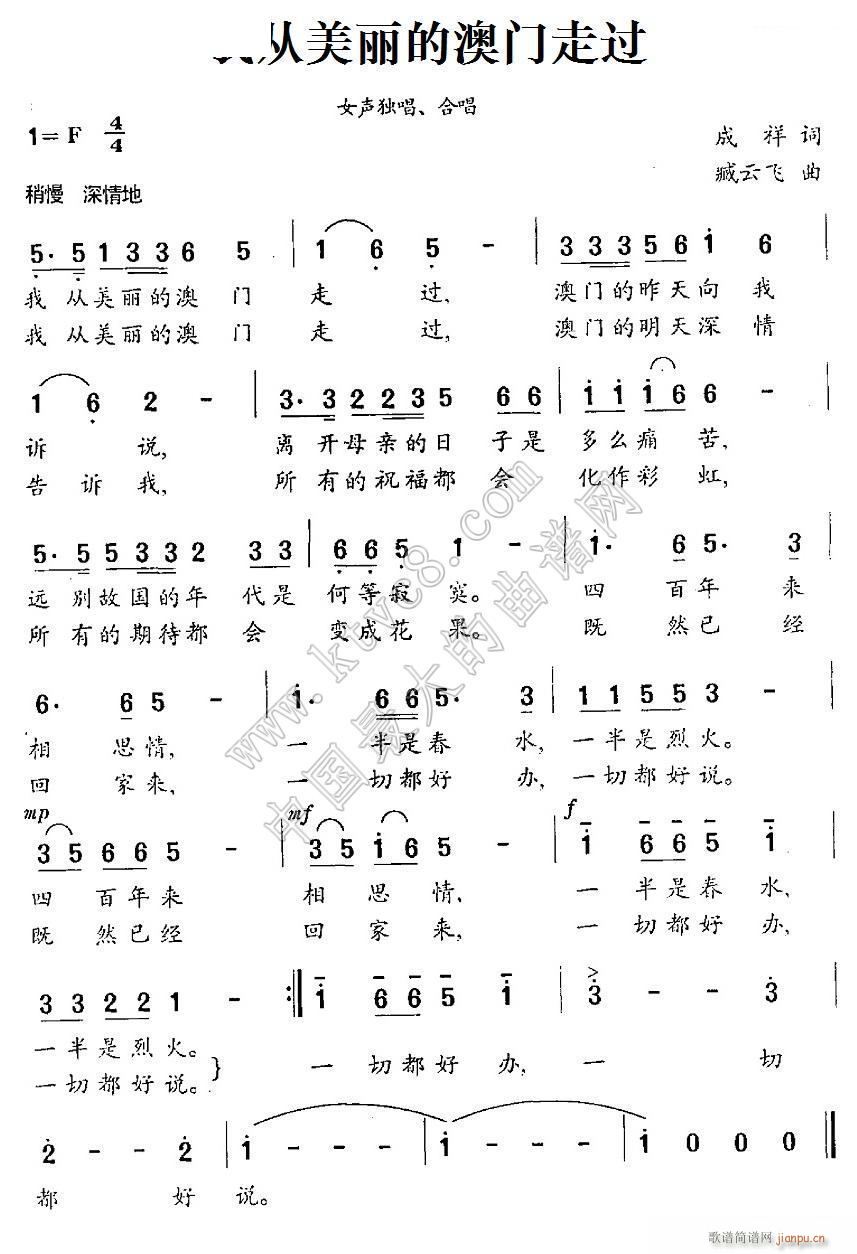 从美丽的澳门走过
女声独唱、合唱
1=F 4/4
成祥词
臧云飞曲
稍慢 深情地
5. 5 1 3 3 6 5 | 1 6 5 - | 3 3 3 5 6 1 6 |
我从美丽的澳门走过,澳门的昨天向我
我从美丽的澳门走过,澳门的明天深情
1 6 2 - | 3. 3 2 2 3 5 6 6 | 1 1 1 6 6 - |
诉说,离开母亲的日子是多么痛苦,
告诉我,所有的祝福都会化作彩虹,
5. 5 5 3 3 2 3 3 | 6 6 5 1 - | 1. 6 5. 3 |
远别故国的年代是何等寂寞。四百年来
所有的期待都会变成花果。既然已经
6. 6 5 - | 1. 6 6 5. 3 | 1 1 5 5 3 - |
相思情,一半是春水,一半是烈火。
回家来,一切都好办,一切都好说。
mp mf f
3 5 6 6 5 - | 3 5 1 6 5 - | 1 6 6 5 1 |
四百年来相思情,一半是春水,
既然已经回家来,一切都好办,
3 3 2 2 1 - :| 1 6 6 5 1 | 3 - - 3 |
一半是烈火。
一切都好说。} 一切都好办,一切
2 - - 2 | 1 - - - | 1 - - - | 1 0 0 0 ||
都好说。
www.ktvc8.com
中国最大的曲谱网
歌谱简谱网
jianpu.cn